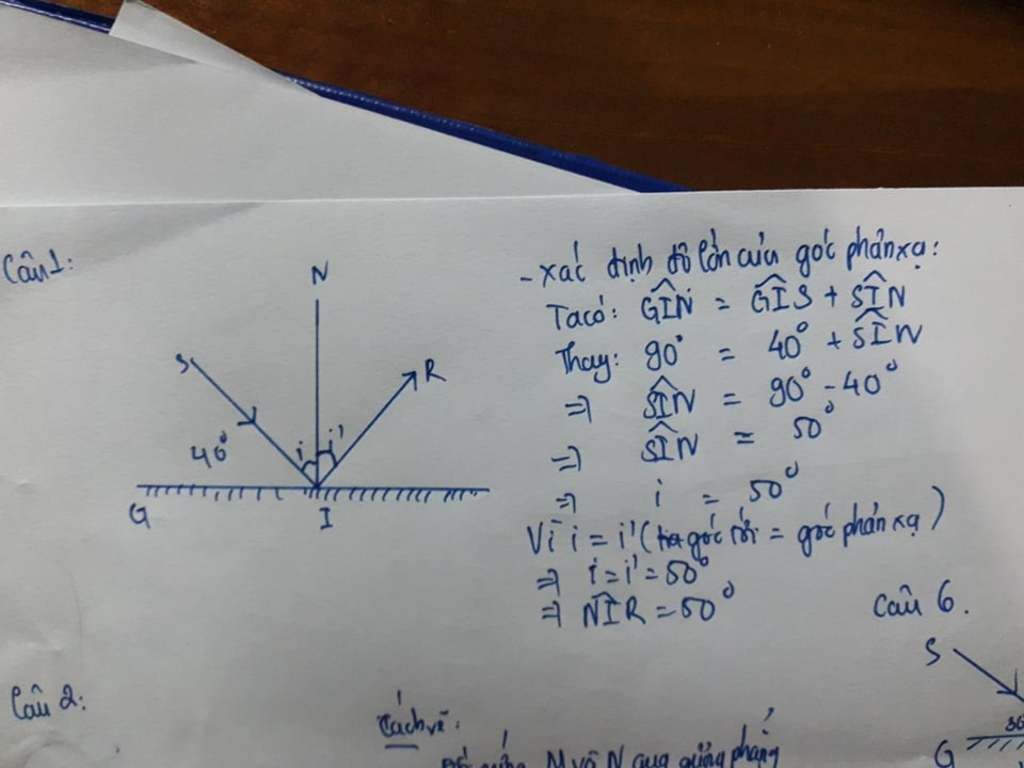 Câu 1:
N
S
R
40°
i i'
G
I
- xác định độ lớn của góc phản xạ:
Ta có: GÎN = GÎS + SÎN
Thay: 90° = 40° + SÎN
=> SÎN = 90° - 40°
=> SÎN = 50°
=> i = 50°
Vì i = i' (góc tới = góc phản xạ)
=> i = i' = 50°
=> NÎR = 50°
Câu 6.
S
G
Câu 2:
Cách vẽ:
M và N qua gương phẳng